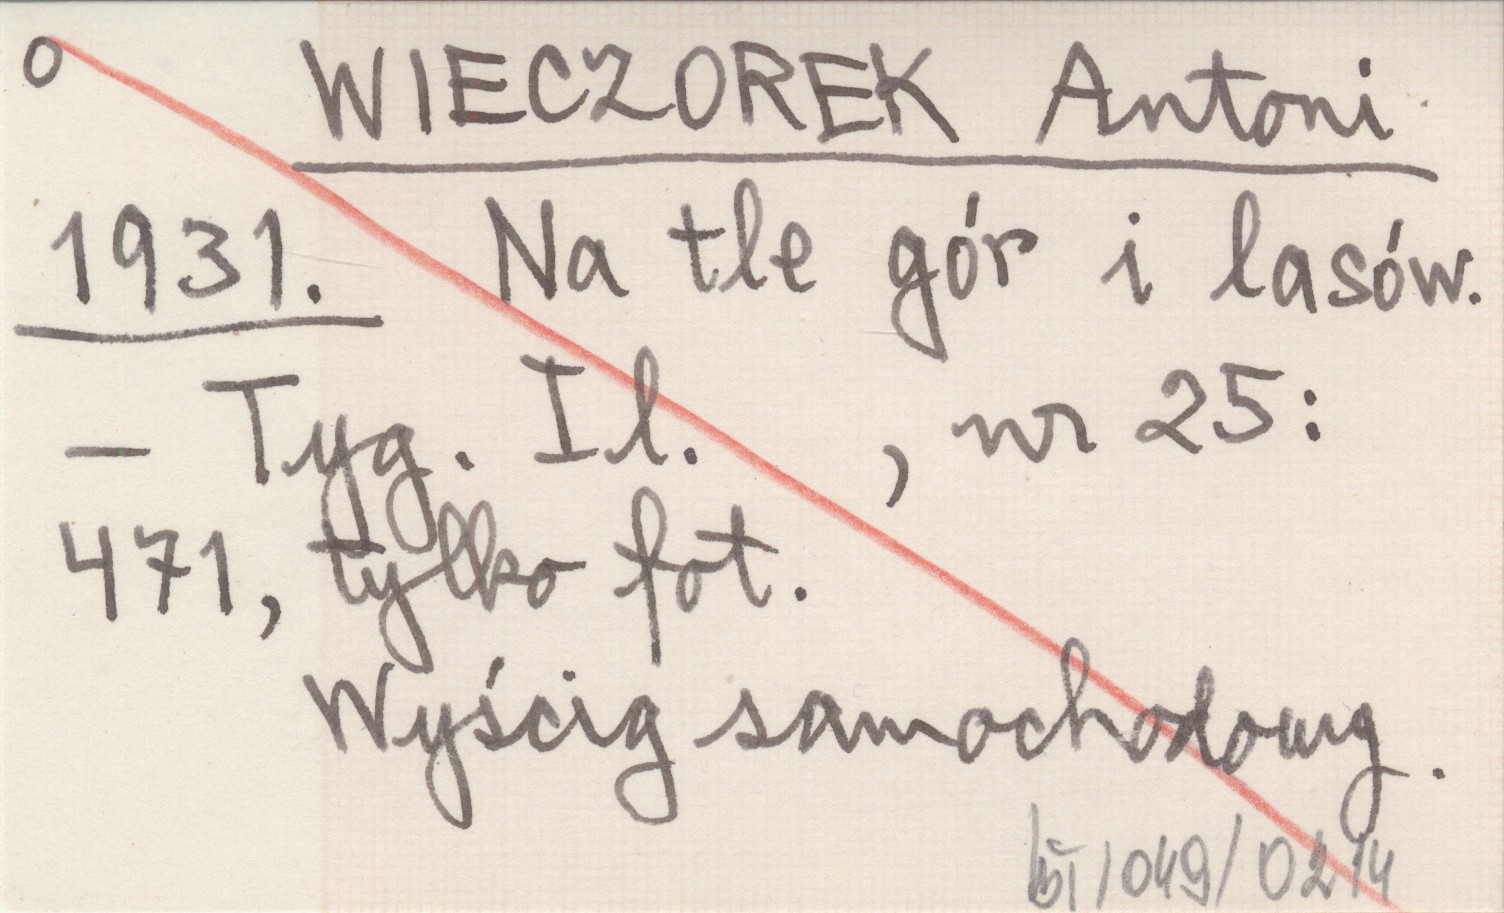 o WIECZOREK Antoni
1931. Na tle gór i lasów.
– Tyg. Il. , nr 25:
471, tylko fot.
Wyścig samochodowy.
/049/0214